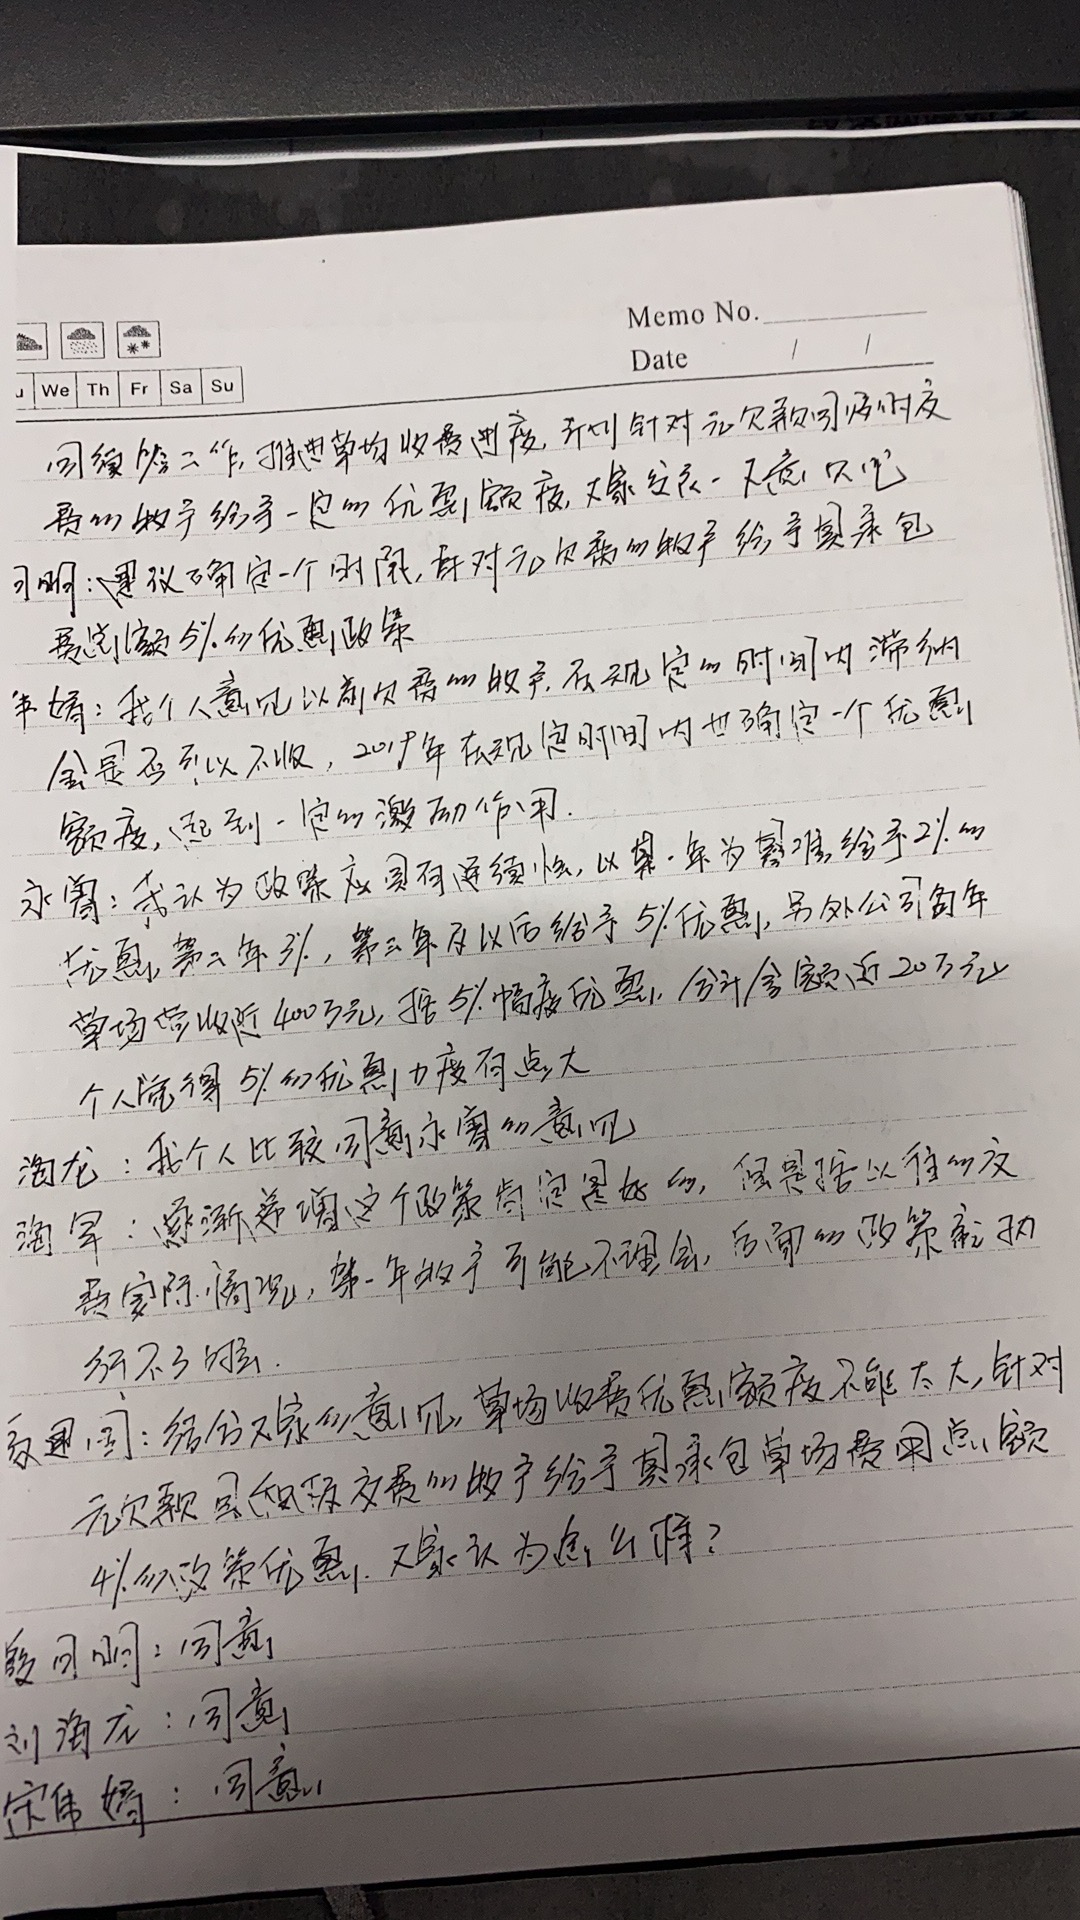 Memo No.
Date / /
We Th Fr Sa Su
工作,推进草场收费进度,计划针对无欠款同时
费的牧户给予一定的优惠额度,大家交流一下意见
明:建议确定一个时限,针对无欠费的牧户给予其承包
费总额5%的优惠政策
娟:我个人意见以前欠费的牧户,在规定的时间内滞纳
金是否可以不收,2019年在规定时间内也确定一个优惠
额度,起到一定的激励作用.
永:我认为政策应具有连续性,以第一年为基准给予2%的
优惠,第二年3%,第三年及以后给予5%优惠,另外公司每年
草场营收近400万元,按5%幅度优惠,合计金额近20万元
个人觉得5%的优惠力度有点大
海龙:我个人比较同意永的意见
海军:逐渐递增这个政策肯定是好的,但是按以往的交
费实际情况,第一年牧户可能不理会,后面的政策就执
行不了的.
结合大家的意见,草场收费优惠额度不能太大,针对
无欠款交费的牧户给予其承包草场费用总额
4%的政策优惠.大家认为怎么样?
明:同意
刘海龙:同意
宋伟娟:同意